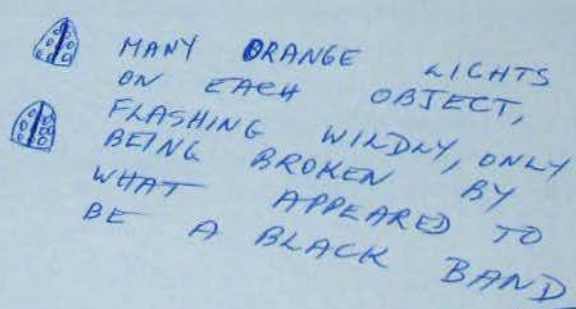 MANY ORANGE LIGHTS
ON EACH OBJECT,
FLASHING WILDLY, ONLY
BEING BROKEN BY
WHAT APPEARED TO
BE A BLACK BAND